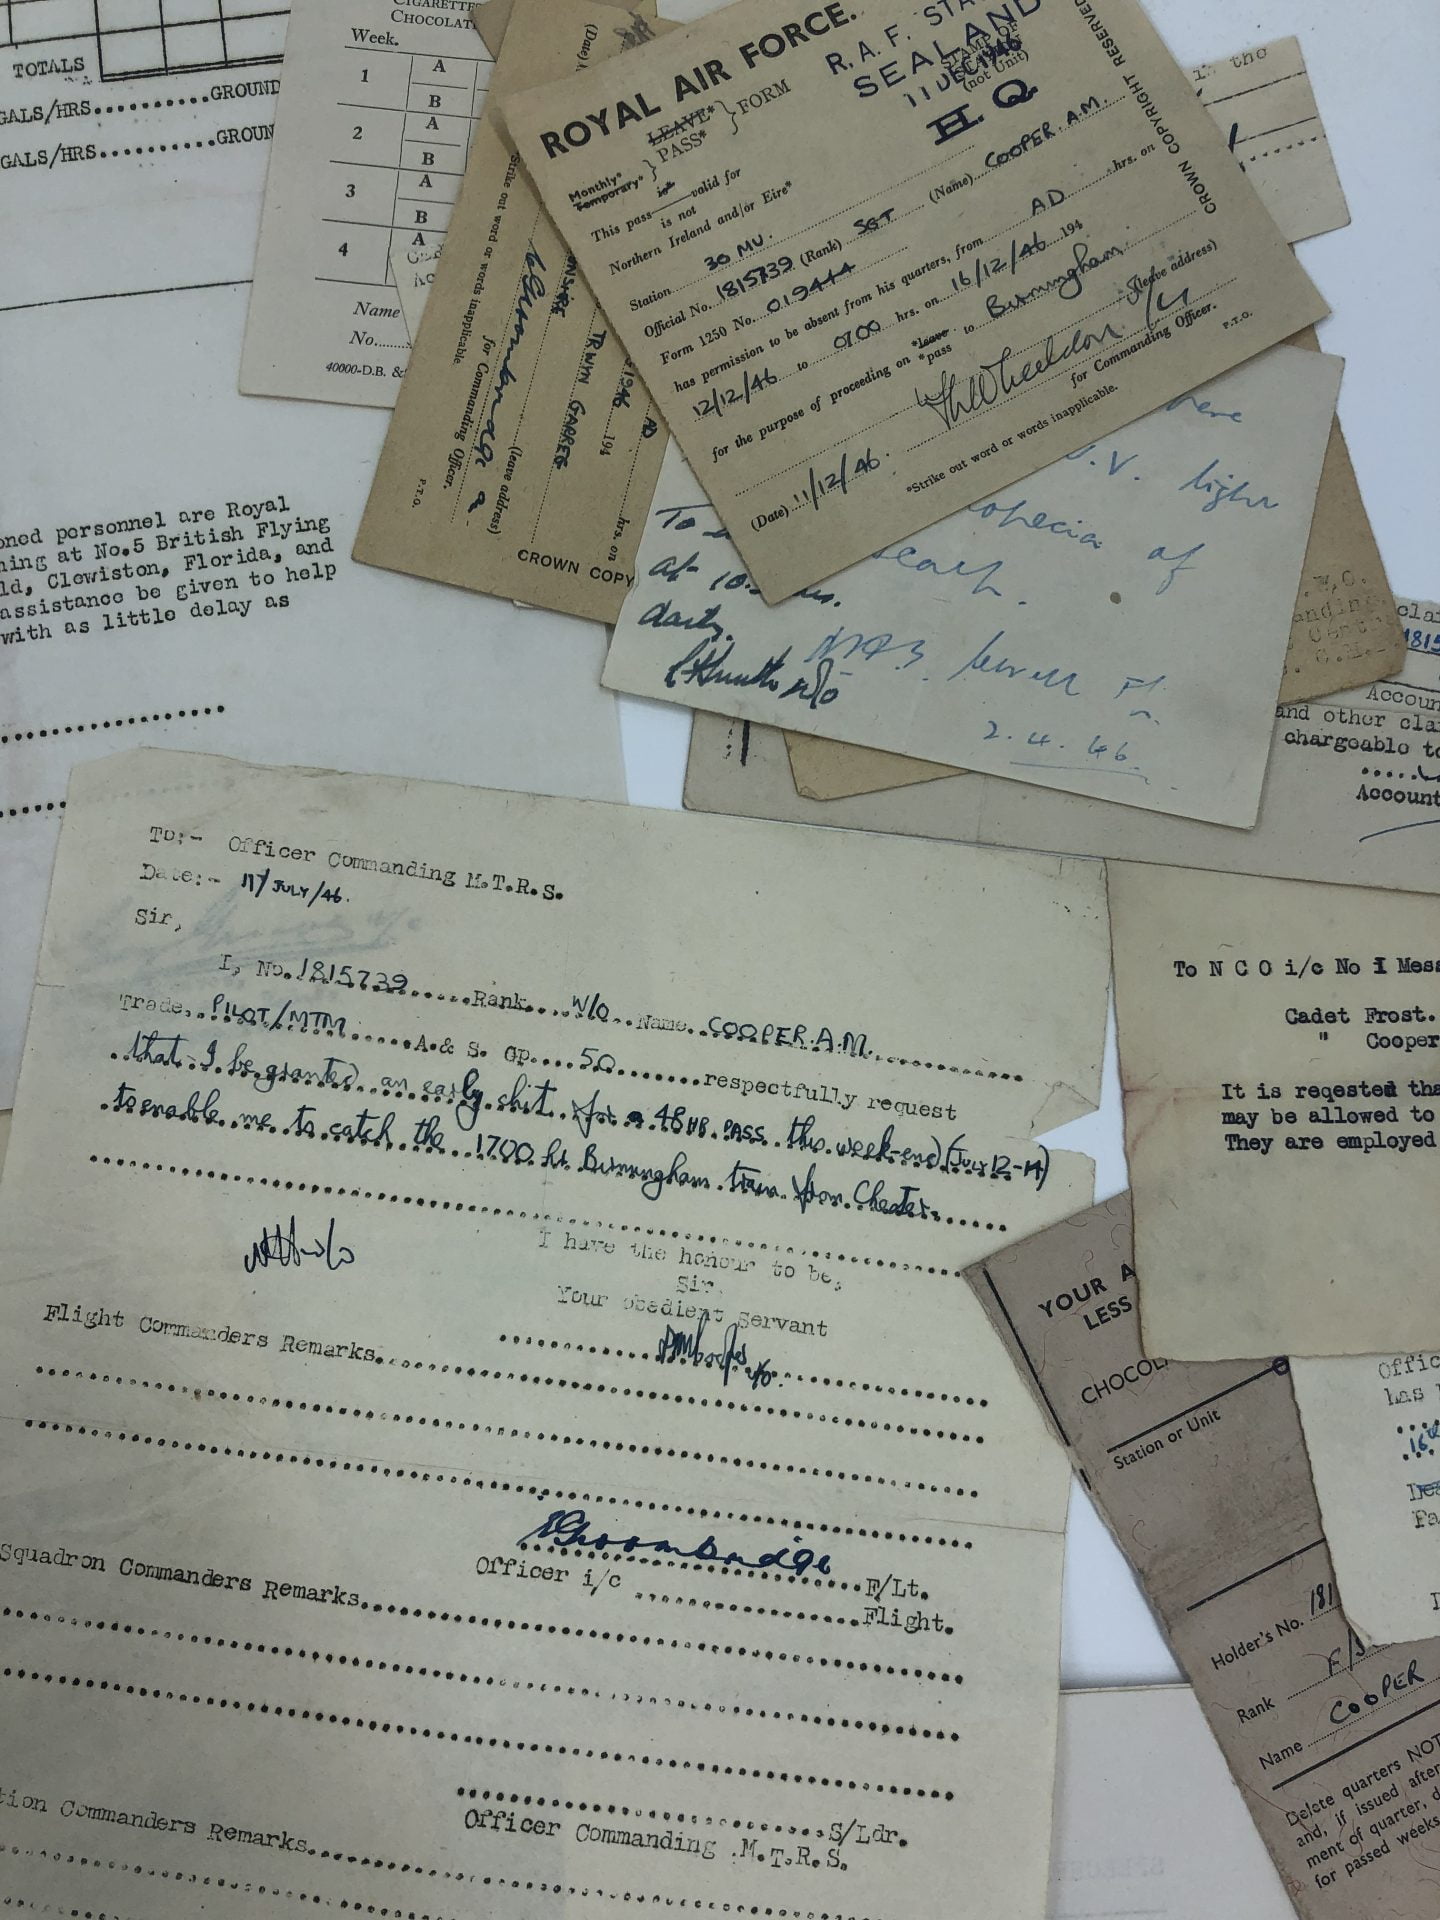 TOTALS
GALS/HRS..........GROUND
GALS/HRS..........GROUN
CIGARETTE
CHOCOLAT
Week.
1 A
B
2 A
B
3 A
B
4 A
Name
No.
40000-D.B. &
*Strike out word or words inapplicable.
for Commanding Officer.
(leave address)
TRWYN GARREG
1946 194
AD
hrs. on
P.T.O.
CROWN COPY
(Date)
ROYAL AIR FORCE.
R.A.F. STA
SEALAND
11 DEC 1946
STAMP OF
(not Unit)
H.Q.
LEAVE*
PASS* } FORM
Monthly*
Temporary* }
This pass is valid for
is not
Northern Ireland and/or Eire*
Station 30 MU.
Official No. 1815739 (Rank) SGT (Name) COOPER. A.M.
Form 1250 No. 019444
has permission to be absent from his quarters, from AD hrs. on
12/12/46 to 0700 hrs. on 16/12/46 194
for the purpose of proceeding on *leave
*pass to Birmingham (leave address)
for Commanding Officer.
(Date) 11/12/46.
*Strike out word or words inapplicable.
P.T.O.
CROWN COPYRIGHT RESERVED
in the
oned personnel are Royal
ning at No.5 British Flying
ld, Clewiston, Florida, and
assistance be given to help
with as little delay as
here
U.V. light
of
To
at 10.
daily.
2.4.46.
Accoun
and other clai
chargeable to
Account
To:- Officer Commanding M.T.R.S.
Date:- 11/JULY/46.
Sir,
I, No.1815739......Rank....W/O..Name..COOPER.A.M.
Trade..PILOT/MTM......A.& S. Gp....50.......respectfully request
that I be granted an early shit for a 48 HR PASS this week-end (July 12-14)
to enable me to catch the 1700 hr Birmingham train from Chester.
I have the honour to be,
Sir,
Your obedient Servant
Flight Commanders Remarks
Groombridge
F/Lt.
Officer i/c ..............Flight.
Squadron Commanders Remarks
S/Ldr.
Officer Commanding .M.T.R.S.
tion Commanders Remarks
To N C O i/c No 1 Mess
Cadet Frost.
" Cooper
It is reqested tha
may be allowed to
They are employed
YOUR A
LESS
CHOCOL
Station or Unit
Holder's No. 181
Rank F/S
Name COOPER
Delete quarters NOT
and, if issued after
ment of quarter, d
for passed weeks
Offic
has
16th